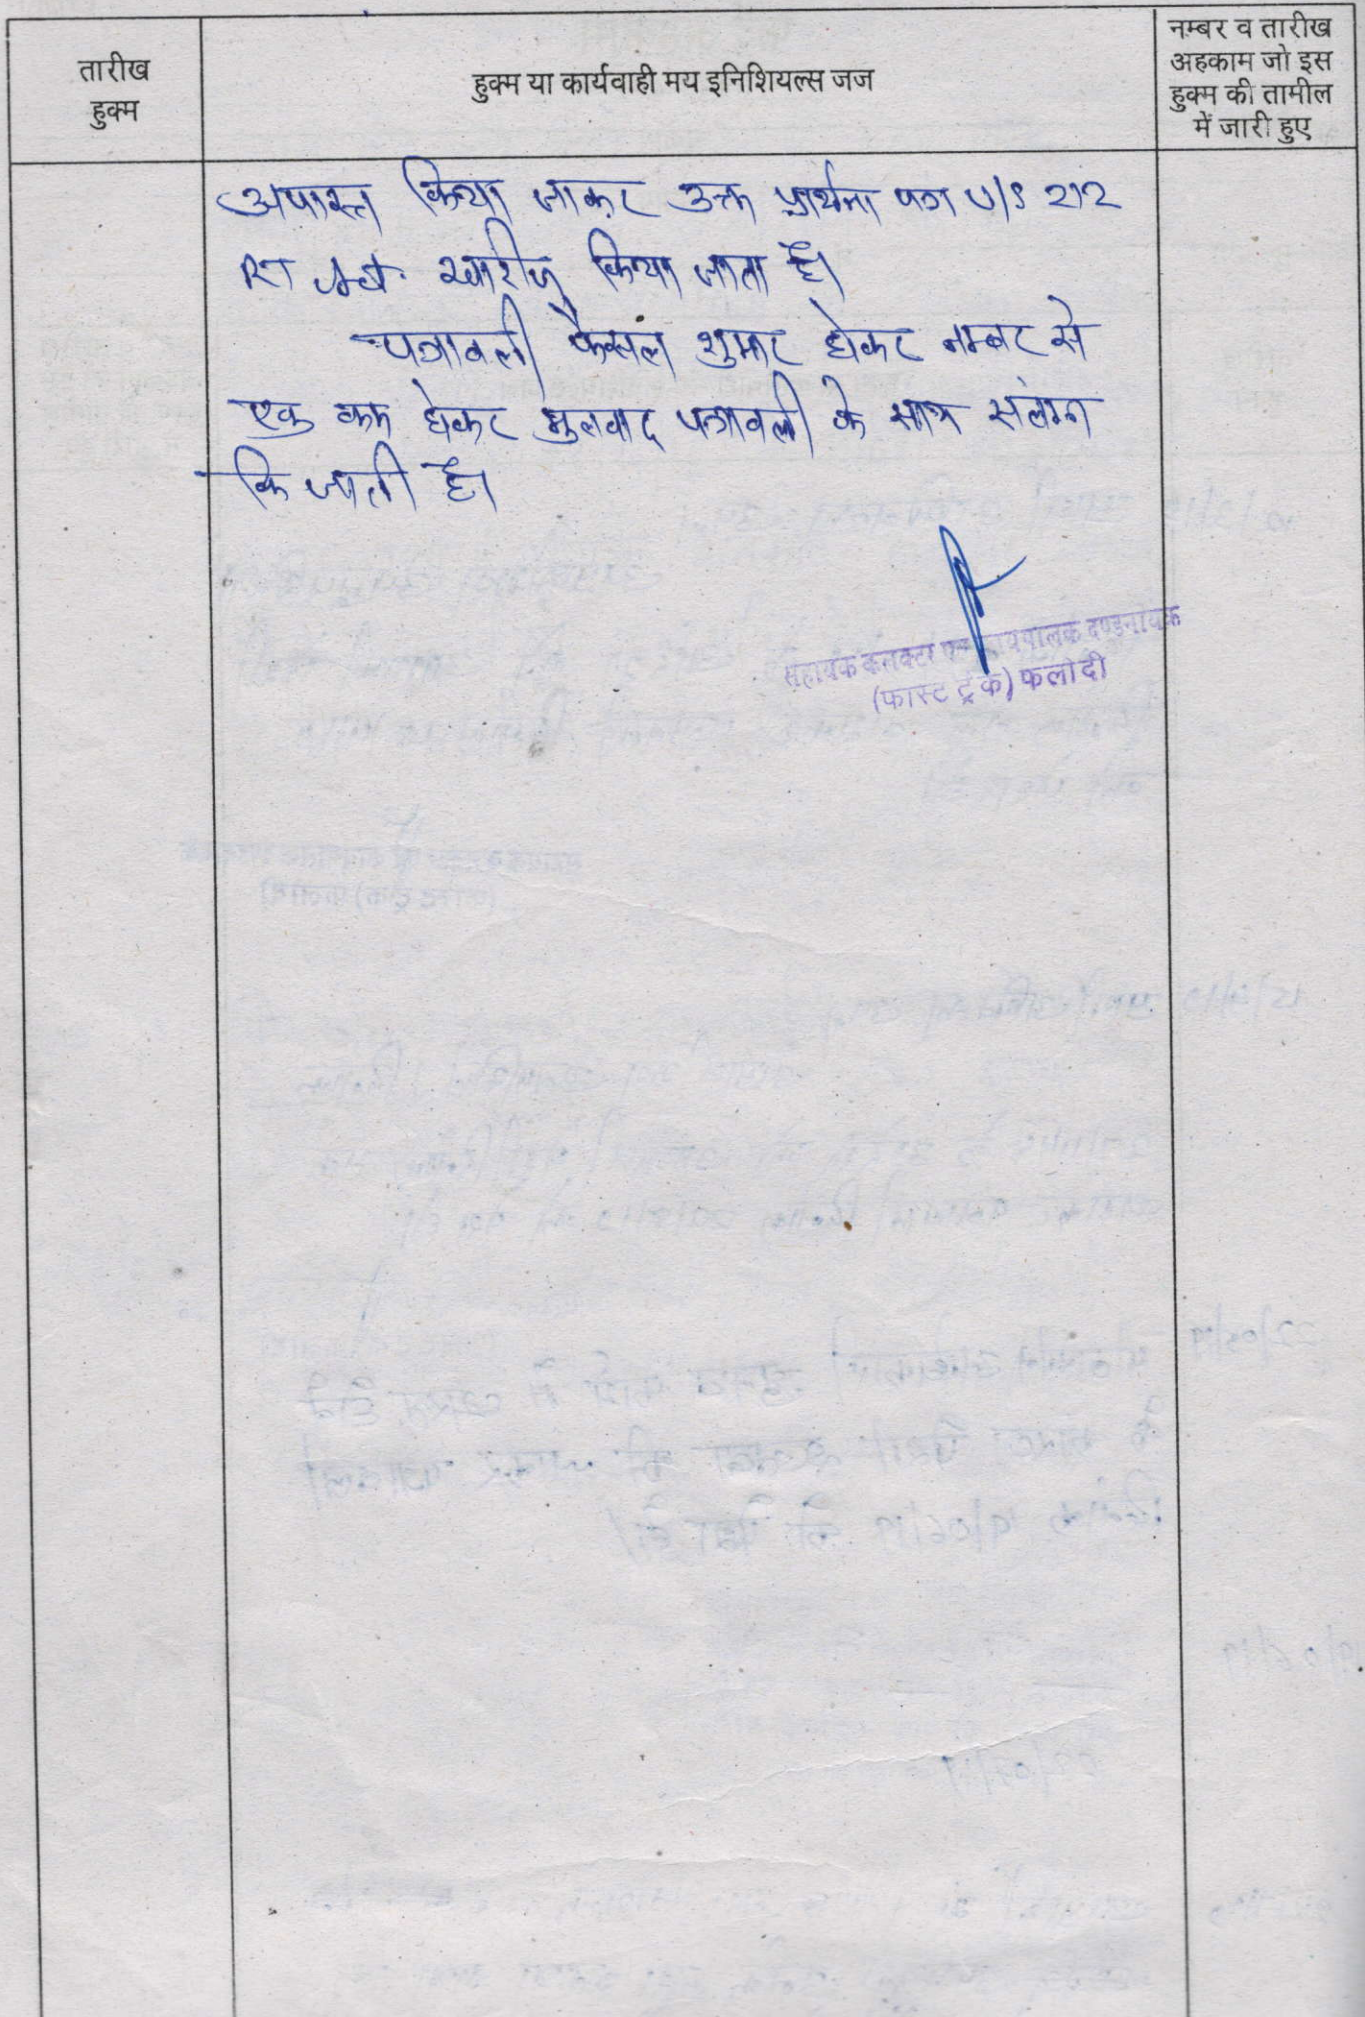 तारीख
हुक्म
हुक्म या कार्यवाही मय इनिशियल्स जज
नम्बर व तारीख
अहकाम जो इस
हुक्म की तामील
में जारी हुए
अपास्त किया जाकर उक्त प्रार्थना पत्र U/S 212
RT Act. खारीज किया जाता है।
पत्रावली फैसल शुमार होकर नम्बर से
एक कम होकर मुलवाद पत्रावली के साथ संलग्न
कि जाती है।
सहायक कलक्टर एवं कार्यपालक दण्डनायक
(फास्ट ट्रेक) फलोदी